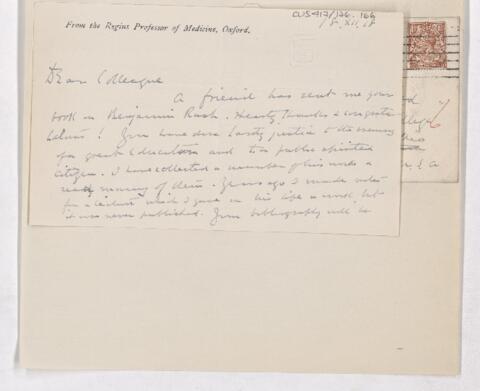 CUS417/126.166
18.XII.18
From the Regius Professor of Medicine, Oxford.
Dear Colleague
A friend has sent me your
book on Benjamin Rush. Hearty thanks & congratu
lations! You have done justice to the memory
of a great Educator and to a public spirited
citizen. I have collected a number of his works &
many of them. Years ago I made notes
for a lecture which I gave on his life & work, but
it was never published. Your bibliography will be
& a